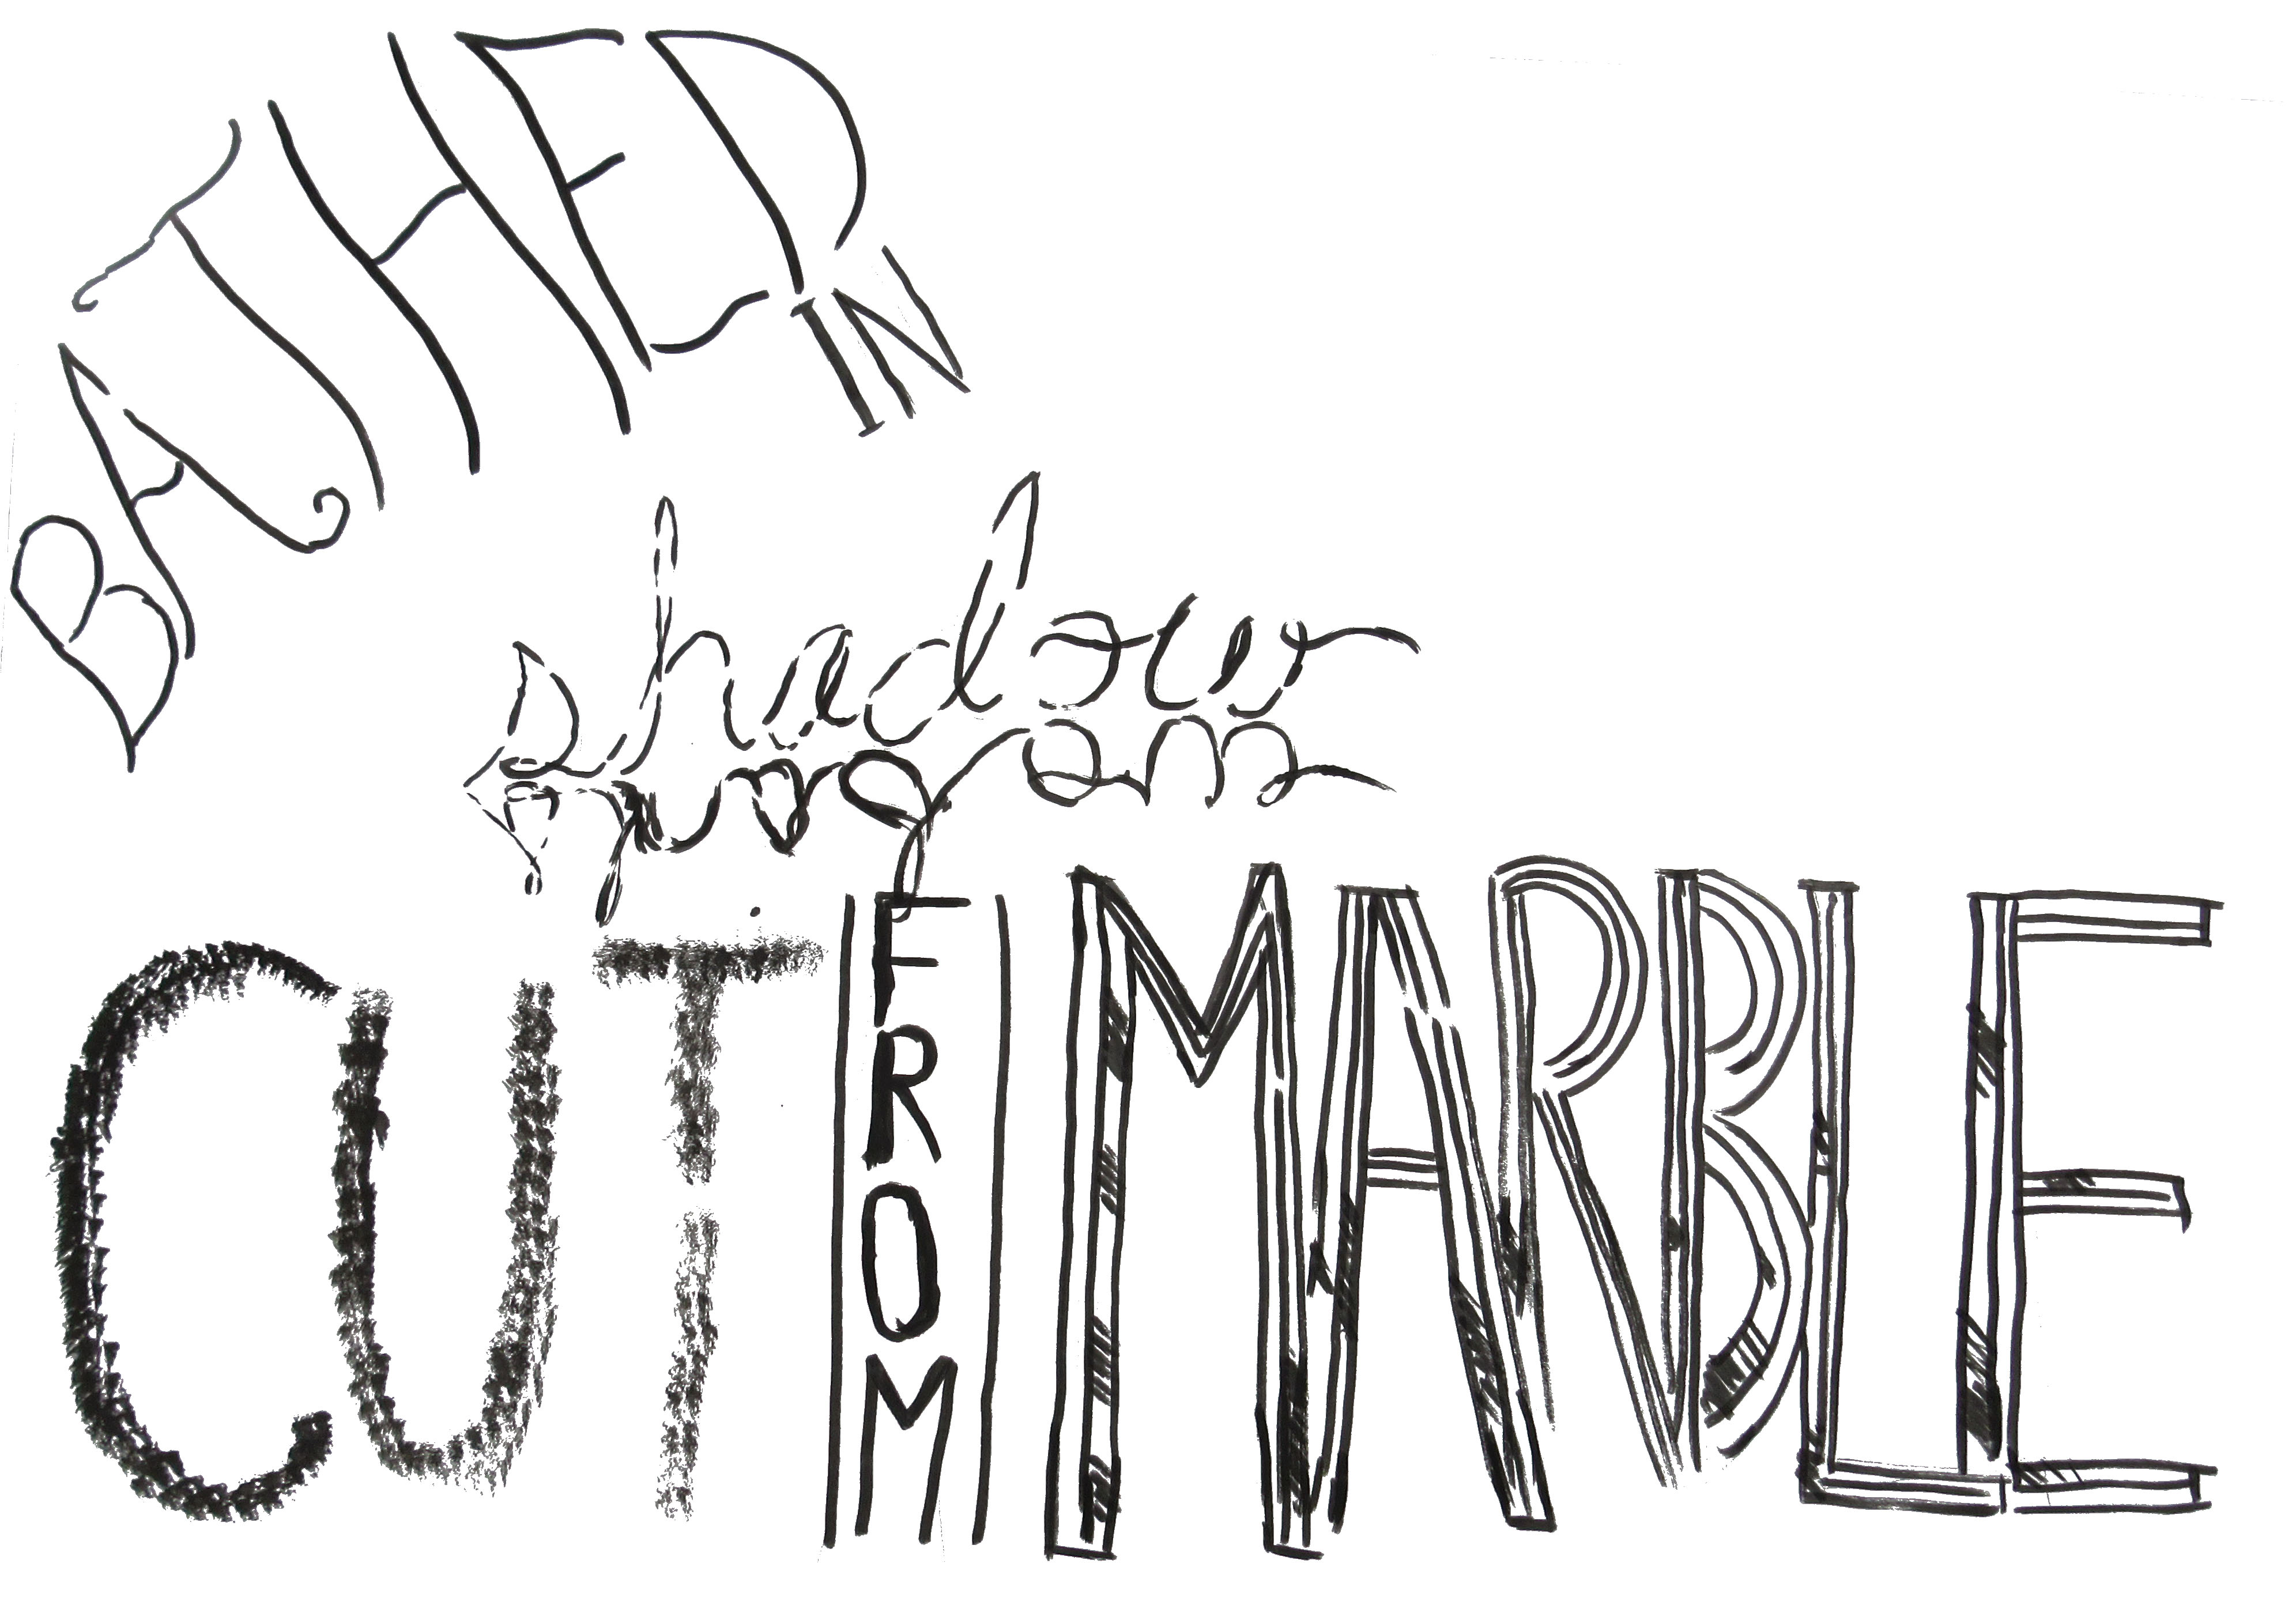 BATHED
IN
shadow
CUT FROM MARBLE